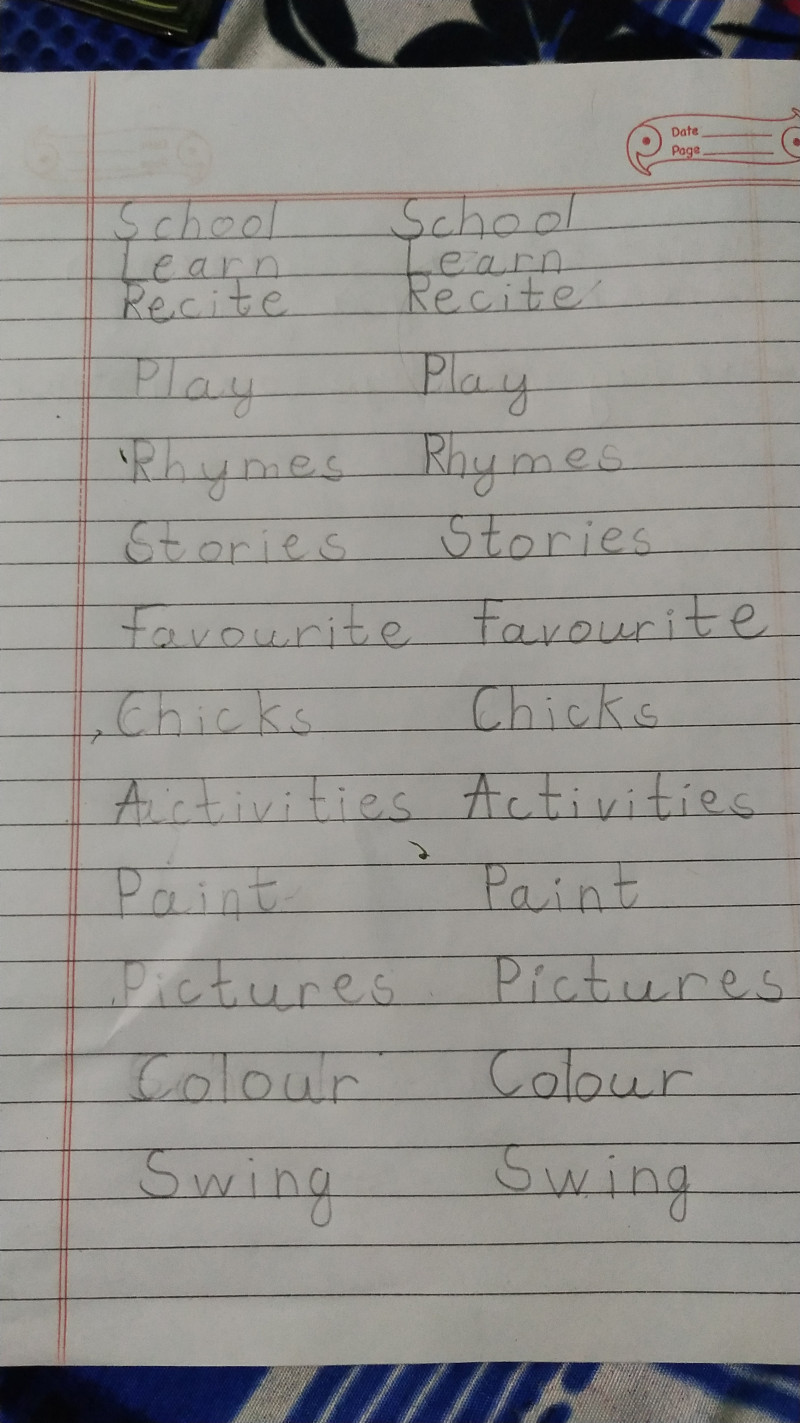 Date
Page
School School
Learn Learn
Recite Recite
Play Play
Rhymes Rhymes
Stories Stories
favourite favourite
Chicks Chicks
Activities Activities
Paint Paint
Pictures Pictures
Colour Colour
Swing Swing